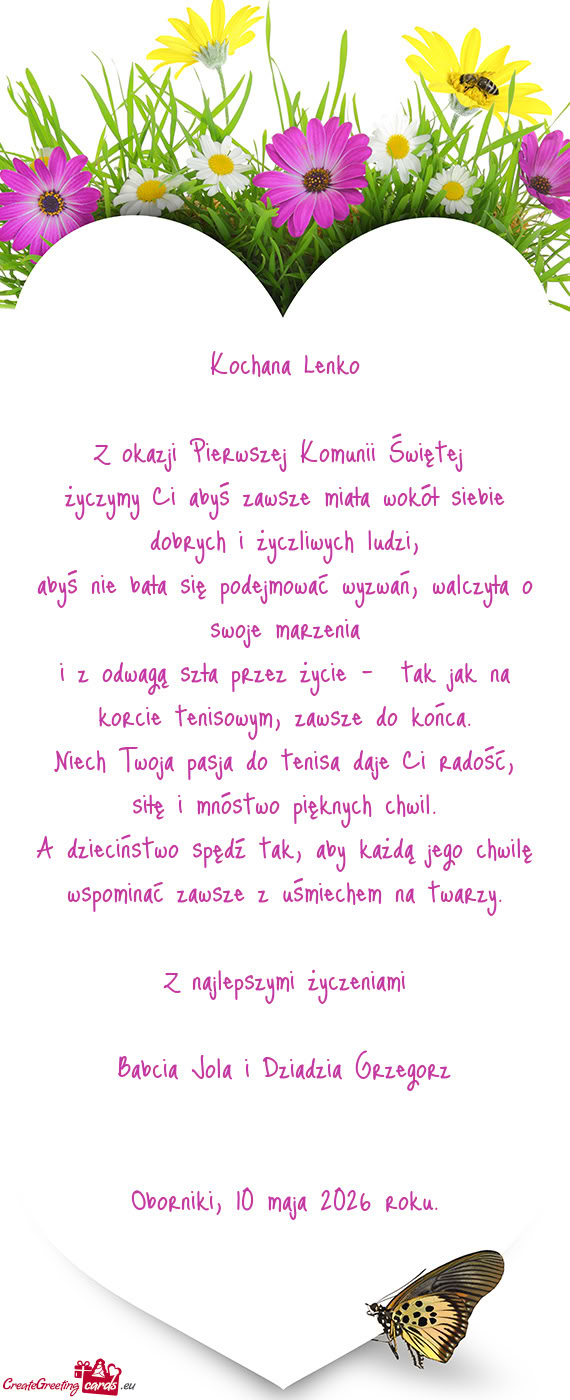 Kochana Lenko
Z okazji Pierwszej Komunii Świętej
życzymy Ci abyś zawsze miała wokół siebie
dobrych i życzliwych ludzi,
abyś nie bała się podejmować wyzwań, walczyła o
swoje marzenia
i z odwagą szła przez życie - tak jak na
korcie tenisowym, zawsze do końca.
Niech Twoja pasja do tenisa daje Ci radość,
siłę i mnóstwo pięknych chwil.
A dzieciństwo spędź tak, aby każdą jego chwilę
wspominać zawsze z uśmiechem na twarzy.
Z najlepszymi życzeniami
Babcia Jola i Dziadzia Grzegorz
Oborniki, 10 maja 2026 roku.
CreateGreeting cards .eu